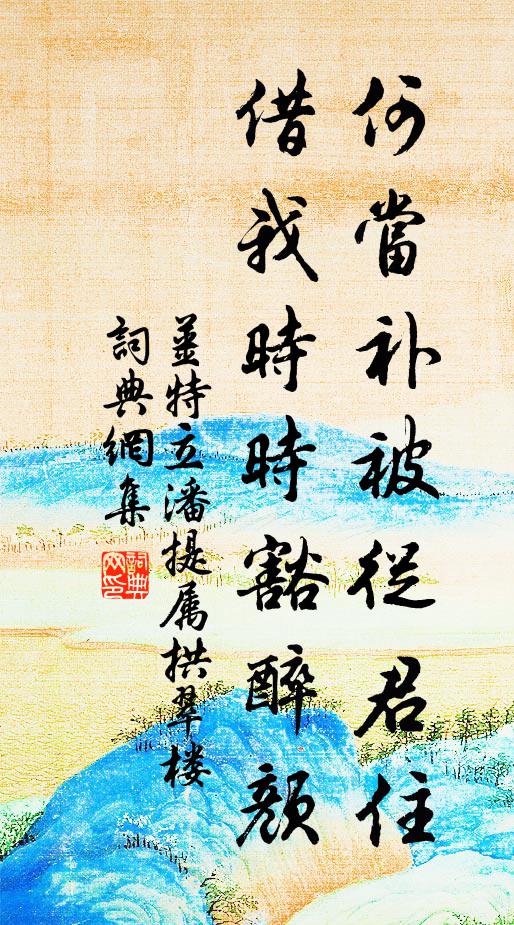 何當补被從君住
借我時時豁醉顔
姜特立潘提属拱翠楼
詞典網集
詞典
网印